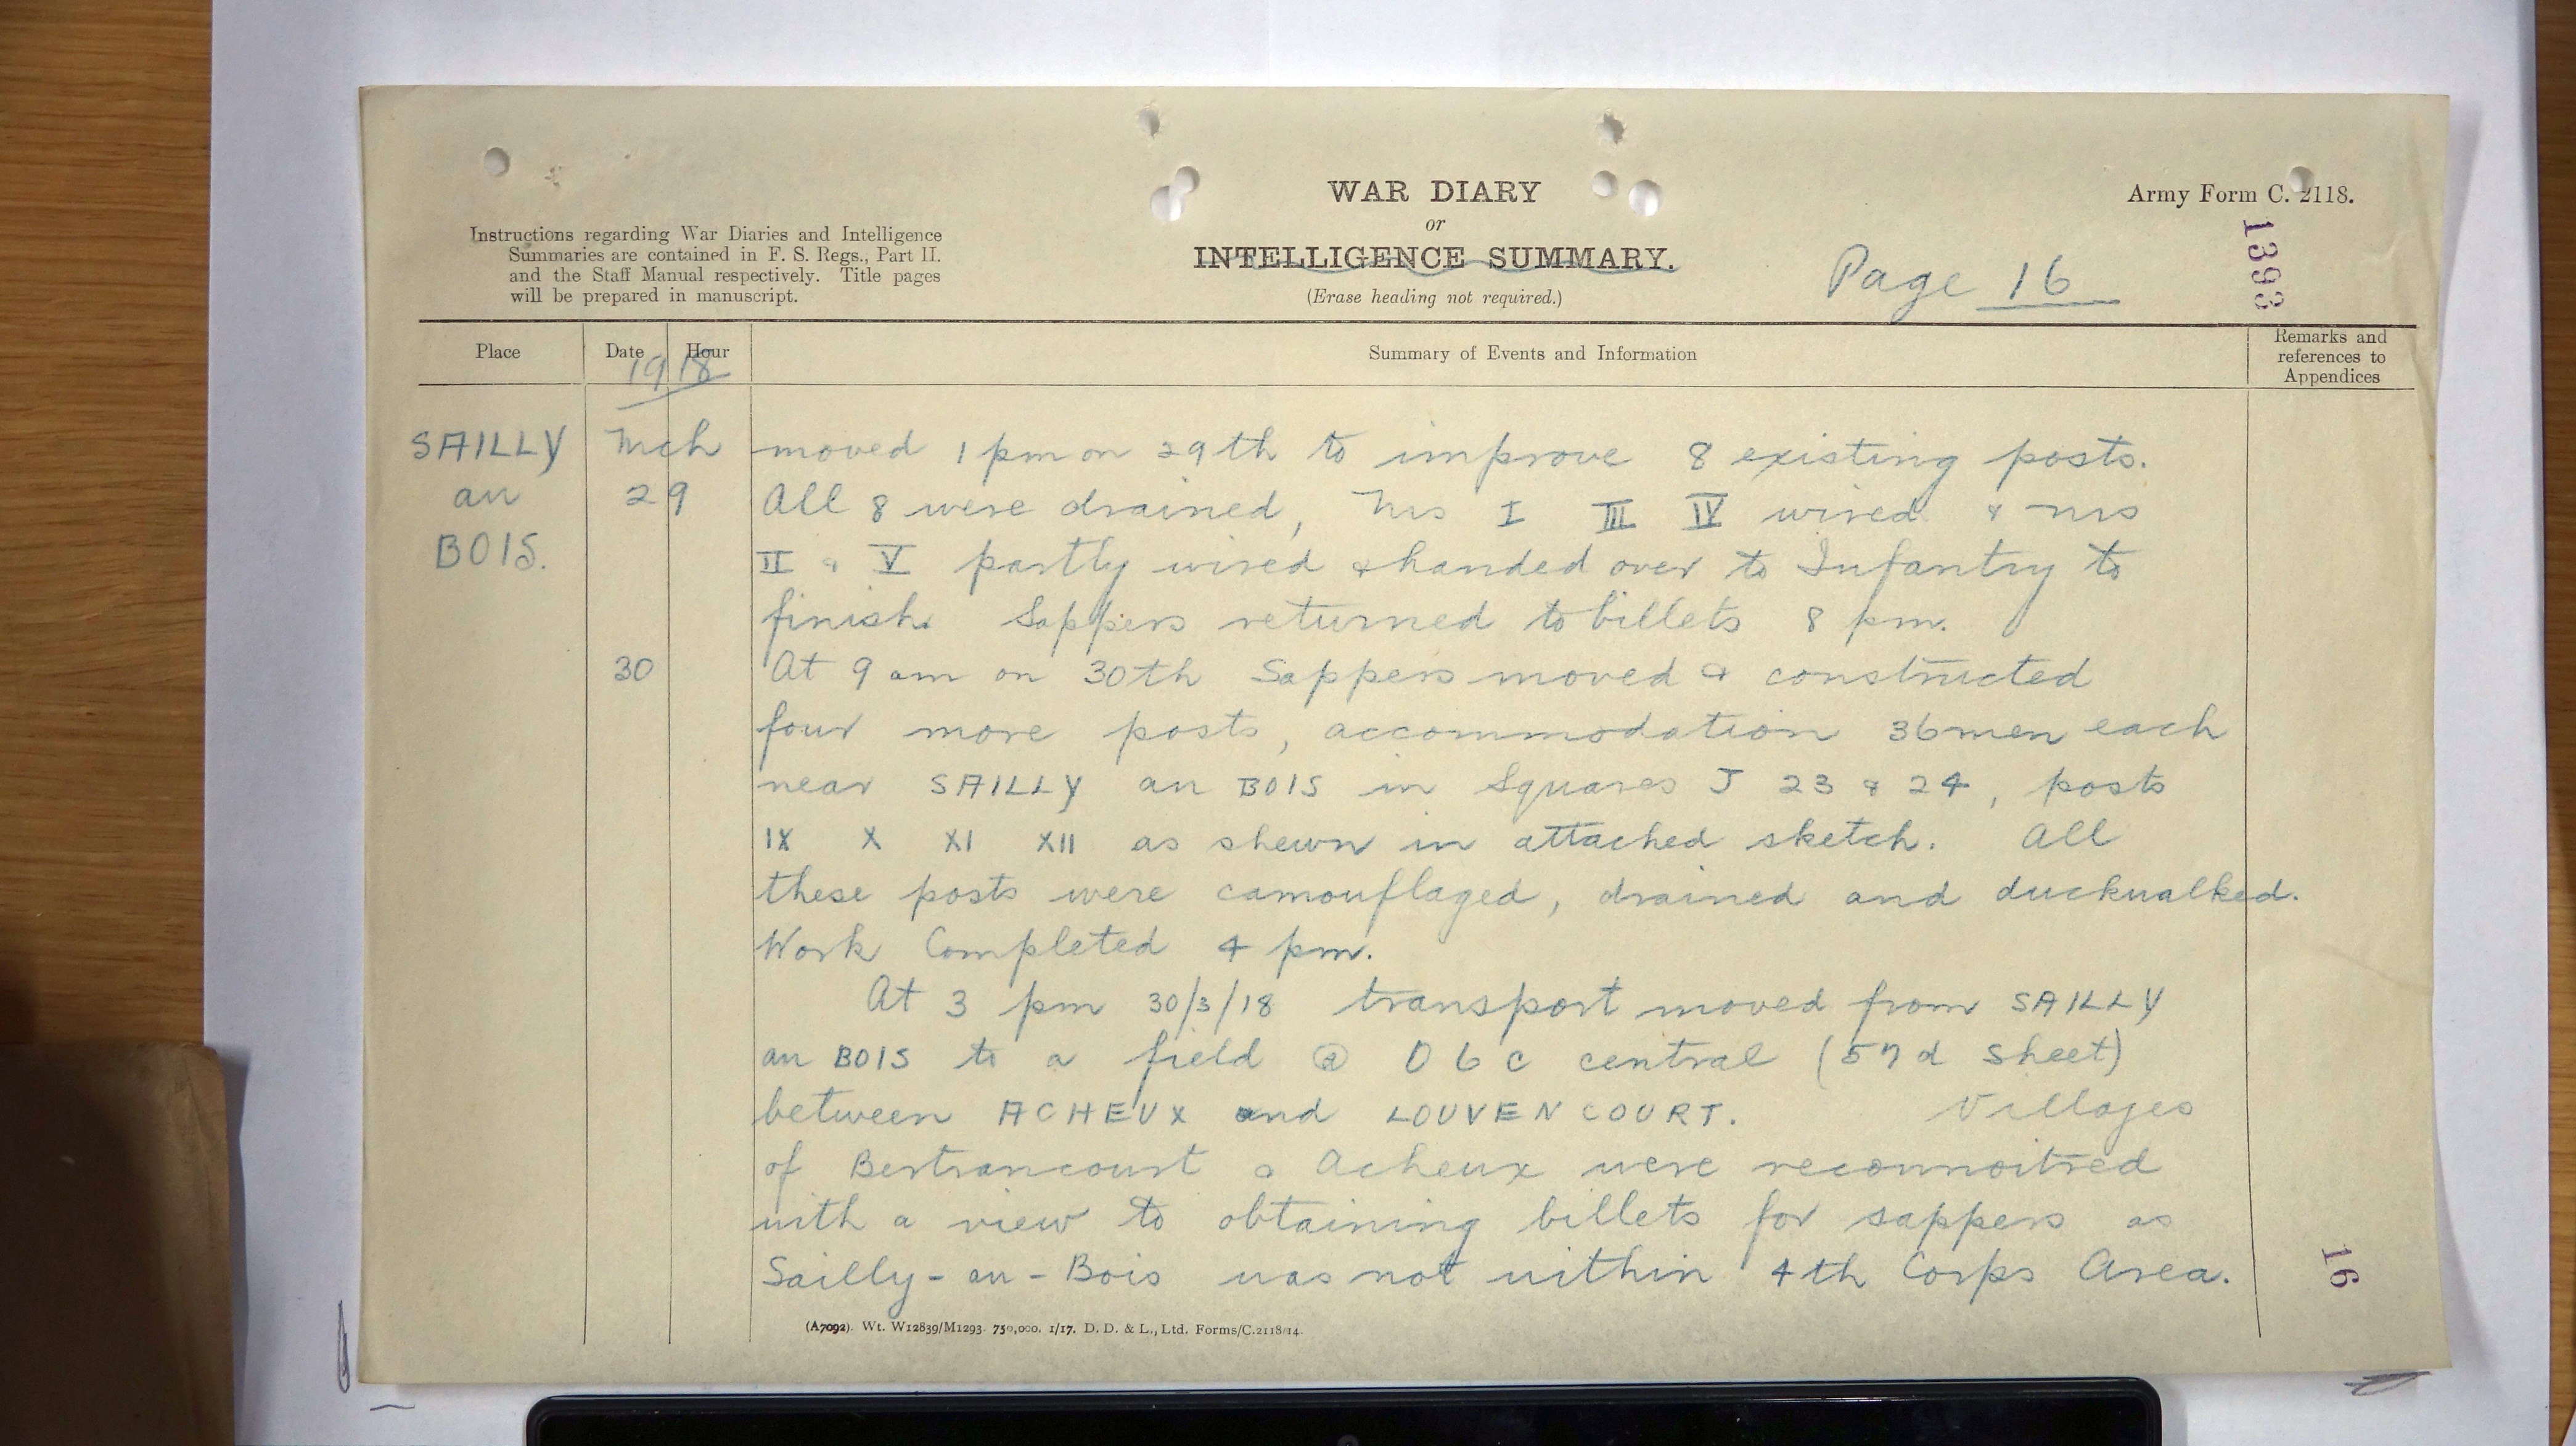 WAR DIARY
or
INTELLIGENCE SUMMARY.
(Erase heading not required.)
Army Form C. 2118.
Instructions regarding War Diaries and Intelligence
Summaries are contained in F. S. Regs., Part II.
and the Staff Manual respectively. Title pages
will be prepared in manuscript.
Page 16
1393
Place
Date
Hour
1918
Summary of Events and Information
Remarks and
references to
Appendices
SAILLY
au
BOIS.
Mch
29
moved 1 pm on 29th to improve 8 existing posts.
All 8 were drained, Nos I III IV wired & nos
II & V partly wired & handed over to Infantry to
finish. Sappers returned to billets 8 pm.
30
At 9 am on 30th Sappers moved & constructed
four more posts, accommodation 36 men each
near SAILLY au BOIS in Squares J 23 & 24, posts
IX X XI XII as shewn in attached sketch. All
these posts were camouflaged, drained and duckwalked.
Work Completed 4 pm.
At 3 pm 30/3/18 transport moved from SAILLY
au BOIS to a field @ O 6 c central (57d Sheet)
between ACHEUX and LOUVENCOURT. Villages
of Bertrancourt & Acheux were reconnoitred
with a view to obtaining billets for sappers as
Sailly-au-Bois was not within 4th Corps Area.
16
(A7092). Wt. W12839/M1293. 750,000. 1/17. D. D. & L., Ltd. Forms/C.2118/14.